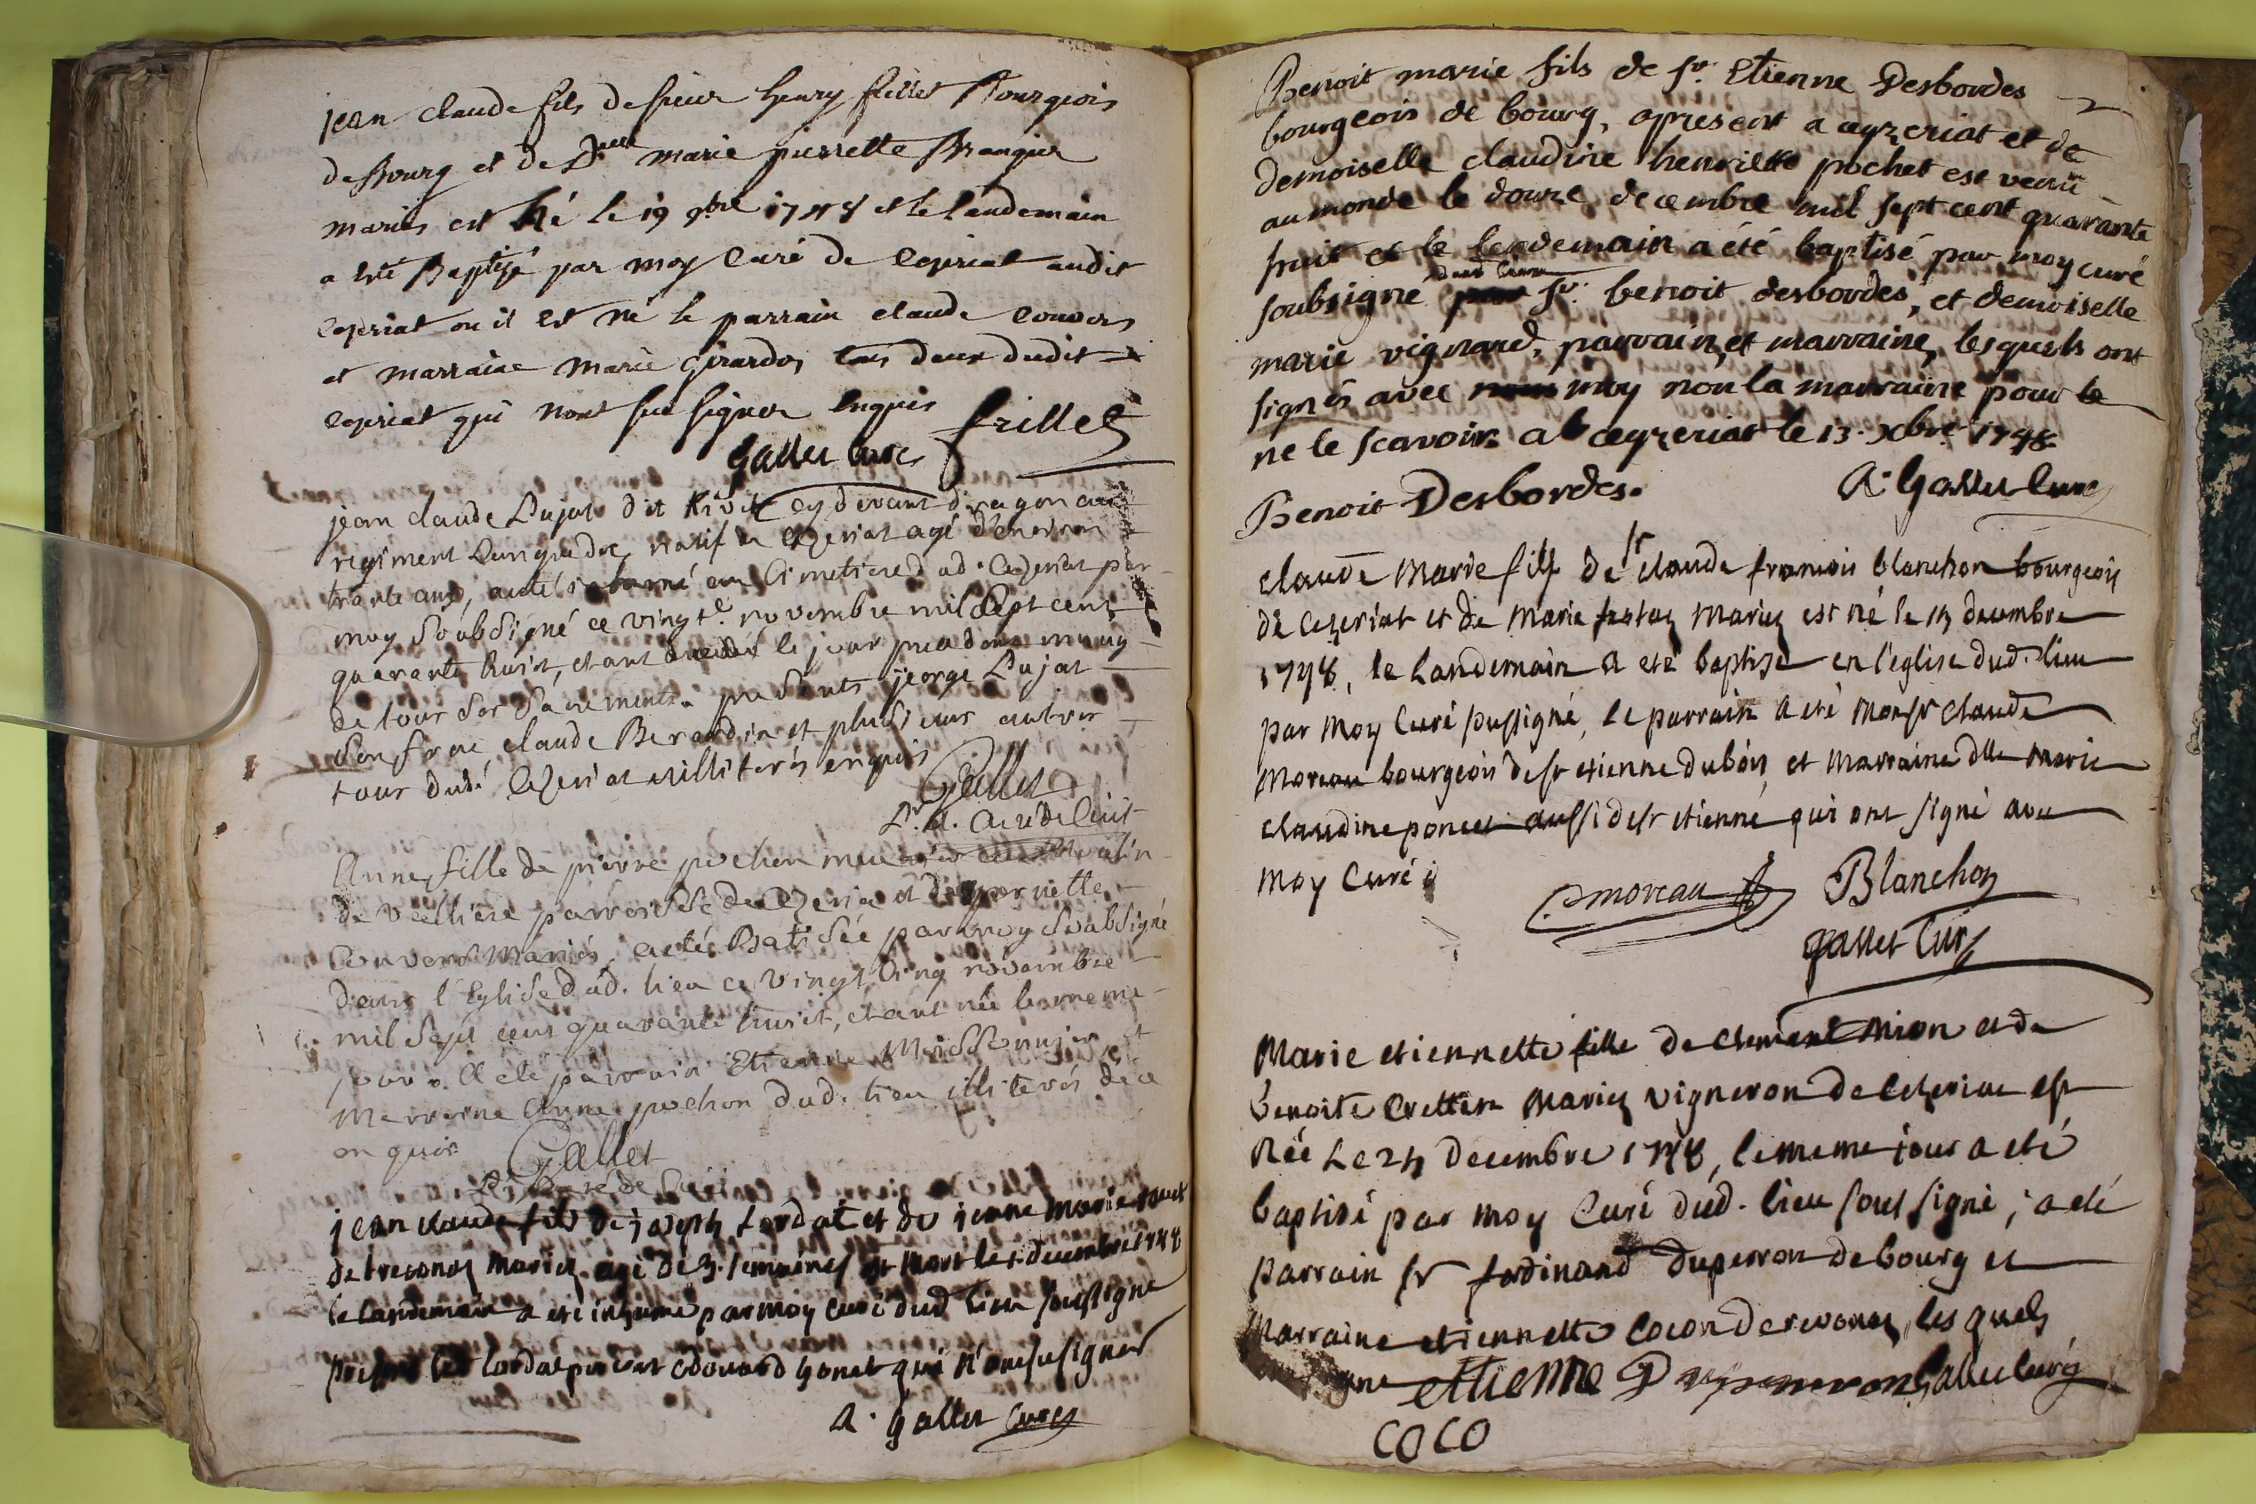 jean claude fils de sieur henry frillet Bourgeois
de Bourg et de Dlle marie pierrette Brangier
mariés est Né le 19 9bre 1748 et le landemain
a été Baptisé par moy Curé de Ceyseriat audit
Ceyseriat ou il est né le parrain claude Convers
et marraine marie Girardos tous deux dudit
Ceyseriat qui nont sçu signer Enquis frillet
gallet Curé
jean claude Pujat dit Rivet cy devant dragon au
regiment Languedoc, natif de Cezeriat agé d'environ
trante ans, a eté inhumé au Cimetiere dud. Cezeriat par
moy Soubsigné ce vingte. novembre mil Sept cent
quarante huit, etant decedé le jour precedent muny
de tour Ses Sacrements. presents jeorge Pujat
Son frere, claude Berardin et plusieurs autres
tour dudt. Cezeriat illiterés enquis
Gallet
Pr. A. Curé de Cuit
Anne, fille de pierre pochon meunier au Moulin
de Velliere parroisse de Cezeria et de pernette
Convers Mariés, a eté Batisée par moy Soubsigné
dans l'Eglise dud. lieu ce vingt cinq novembre
mil Sept cent quarante huit, etant née le meme
jour. A eté parrain Etienne Missonnier, et
Marreine Anne pochon dud. lieu illiterés de ce
enquis Gallet
jean claude fils de joseph tardat et de jeanne marie
de tresonas mariez agé de 3. semaines est mort le 1. decembre 1748
le landemain a eté inhumé par moy curé dud lieu soussigné
presents led tardat pere et edouard gonet qui n'ont su signer
A. gallet Curé
Benoit marie fils de sr. Etienne Desbordes
bourgeois de bourg, apresent a ceyzeriat et de
demoiselle claudine henriette pochet est venu
au monde le douze decembre mil sept cent quarante
huit et le lendemain a été baptisé par moy curé
soubsigné dud lieu sr. benoit desbordes, et demoiselle
marie vignard, parrain, et marraine, lesquels ont
signés avec moy non la marraine pour le
ne le scavoir a ceyzeriat le 13. Xbre 1748.
Benoit Desbordes. A. Gallet Curé
claude Marie fils de sr claude francois blanchon bourgeois
de Cezeriat et de Marie festaz Mariez est né le 13 decembre
1748, le Landemain a eté baptisé en l'eglise dud. lieu
par Moy Curé sussigné, le parrain a eté Monsr claude
Moreau bourgeois de st etienne dubois, et Marraine dlle Marie
claudine poncet aussi de st etienne qui ont signé avec
Moy Curé
C moreau Blanchon
gallet Curé
Marie etiennette fille de clement Mion et de
benoite Crettin Mariez vigneron de Cezeriat est
Née Le 24 decembre 1748, le meme jour a eté
baptisé par Moy Curé dud. lieu soussigné; a eté
parrain sr ferdinand duperron de bourg et
Marraine etiennette Cocon de revonas, les quels
etienne Duperron gallet Curé
COCO